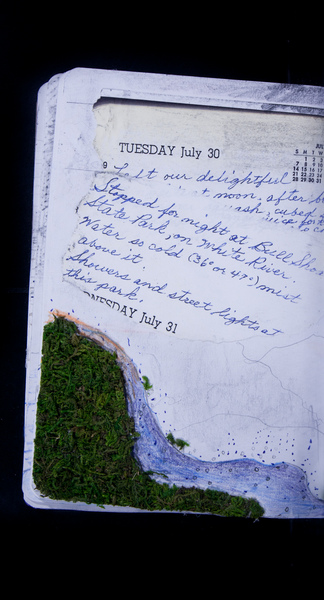 TUESDAY July 30
9 Left our delightful
moon, after
ash, cubed
Stopped for night at Bull Shoa
State Park, on White River
Water so cold (36° or 47°) mist
above it.
Showers and street lights at
this park.
NESDAY July 31
JU
S M T W
1 2 3
7 8 9 10
14 15 16 17
21 22 23 24
28 29 30 31